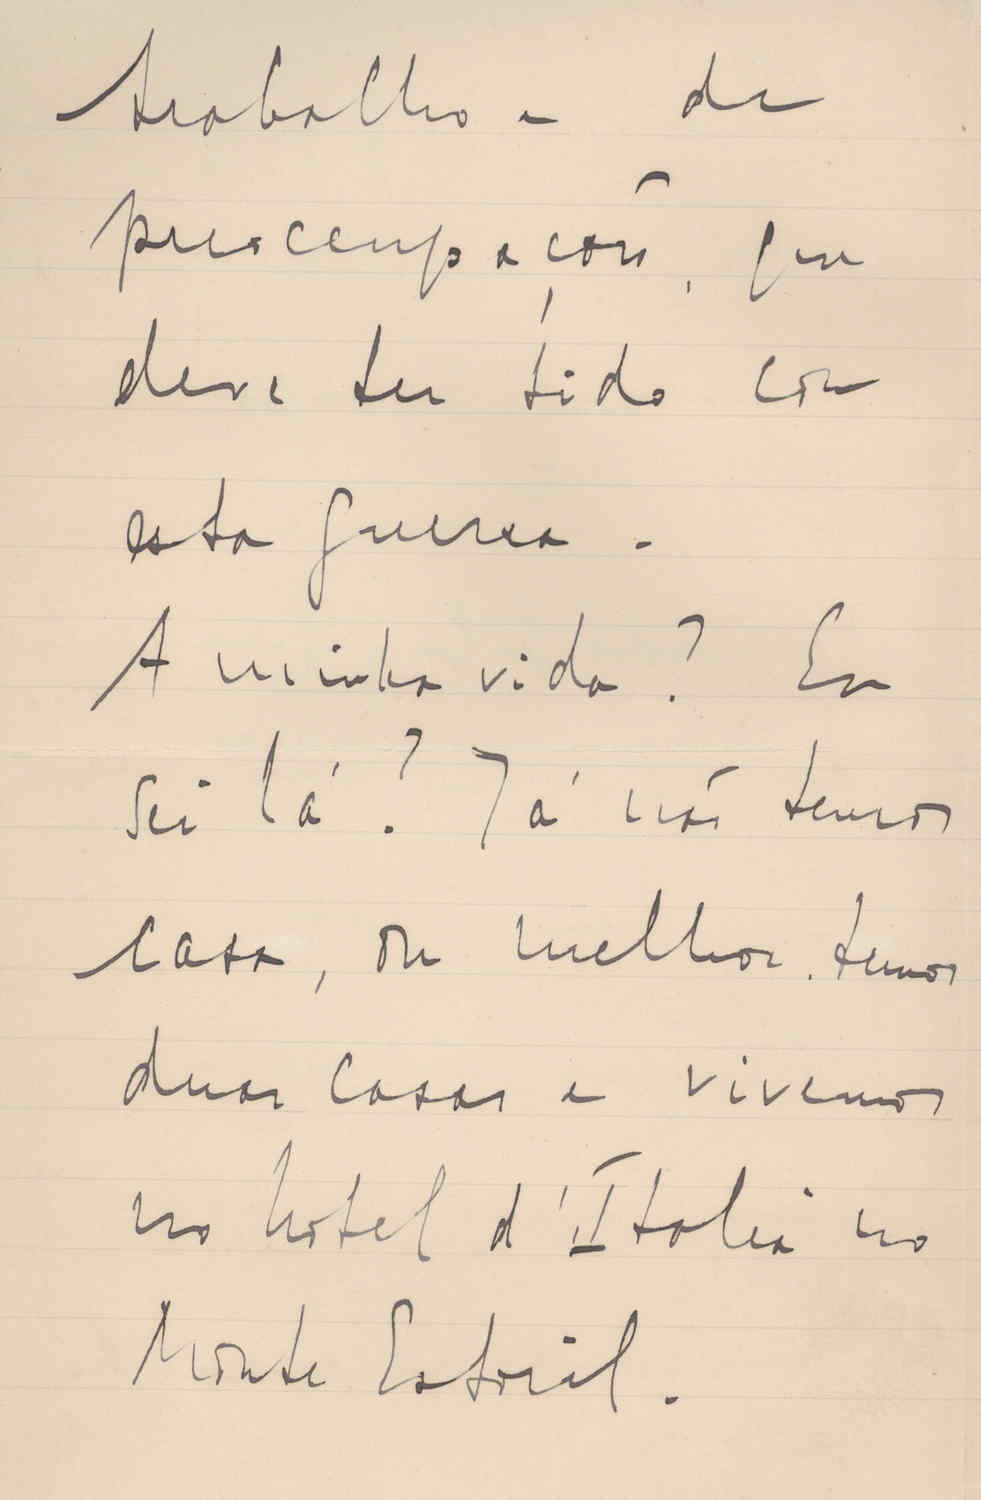 trabalho e de
preocupações, que
deve ter tido com
esta guerra.
A minha vida? Eu
sei lá? Já nós temos
casa, ou melhor, temos
duas casas e vivemos
no hotel d'Itália no
Monte Estoril.